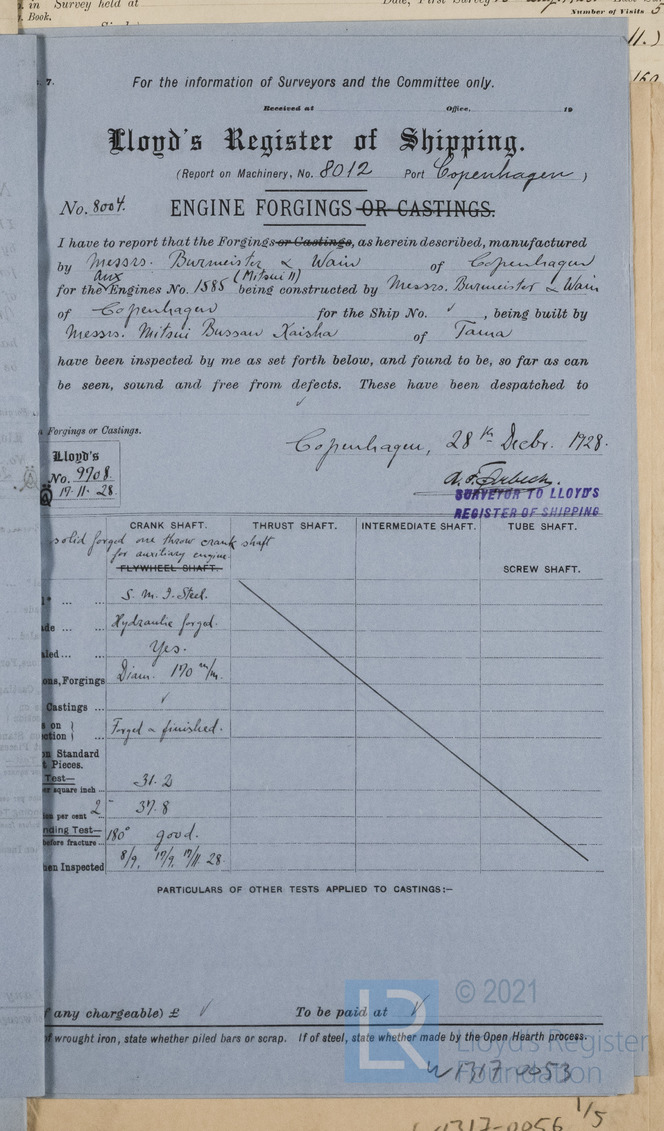 in Survey held at
Date, First Survey
Number of Visits 5
Book.
11.)
160
7.
For the information of Surveyors and the Committee only.
Received at Office, 19
Lloyd's Register of Shipping.
(Report on Machinery, No. 8012 Port Copenhagen)
No. 8004. ENGINE FORGINGS OR CASTINGS.
I have to report that the Forgings or Castings, as herein described, manufactured
by Messrs. Burmeister & Wain of Copenhagen
for the Aux Engines No. 1585 (Mitsui 11) being constructed by Messrs. Burmeister & Wain
of Copenhagen for the Ship No. ✓, being built by
Messrs. Mitsui Bussan Kaisha of Tama
have been inspected by me as set forth below, and found to be, so far as can
be seen, sound and free from defects. These have been despatched to
✓
Forgings or Castings.
Copenhagen, 28th Decbr. 1928.
Lloyd's
No. 9708.
17.11.28.
SURVEYOR TO LLOYD'S
REGISTER OF SHIPPING
CRANK SHAFT. THRUST SHAFT. INTERMEDIATE SHAFT. TUBE SHAFT.
solid forged one throw crank shaft
for auxiliary engine.
FLYWHEEL SHAFT. SCREW SHAFT.
S. M. I. Steel.
Hydraulic forged.
Yes.
ons, Forgings Diam. 170 m/m.
Castings ... ✓
Forged & finished.
Standard
Pieces.
Test—
er square inch ... 31.2
per cent 2" 37.8
nding Test—
before fracture ... 180° good.
en Inspected 8/9. 17/9. 17/11.28.
PARTICULARS OF OTHER TESTS APPLIED TO CASTINGS:—
any chargeable) £ ✓ To be paid at ✓
wrought iron, state whether piled bars or scrap. If of steel, state whether made by the Open Hearth process.
© 2021
LR
Lloyd's Register
Foundation
W1317-0053
1/5
1317-0056